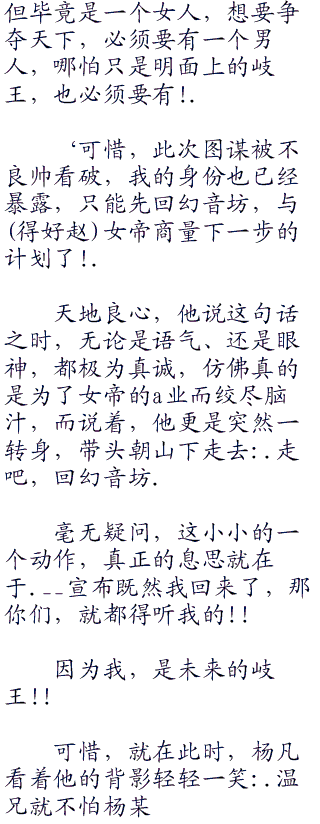 但毕竟是一个女人，想要争
夺天下，必须要有一个男
人，哪怕只是明面上的岐
王，也必须要有!.
‘可惜，此次图谋被不
良帅看破，我的身份也已经
暴露，只能先回幻音坊，与
(得好赵)女帝商量下一步的
计划了!.
天地良心，他说这句话
之时，无论是语气、还是眼
神，都极为真诚，仿佛真的
是为了女帝的a业而绞尽脑
汁，而说着，他更是突然一
转身，带头朝山下走去:.走
吧，回幻音坊.
毫无疑问，这小小的一
个动作，真正的息思就在
于.--宣布既然我回来了，那
你们，就都得听我的!!
因为我，是未来的岐
王!!
可惜，就在此时，杨凡
看着他的背影轻轻一笑:.温
兄就不怕杨某